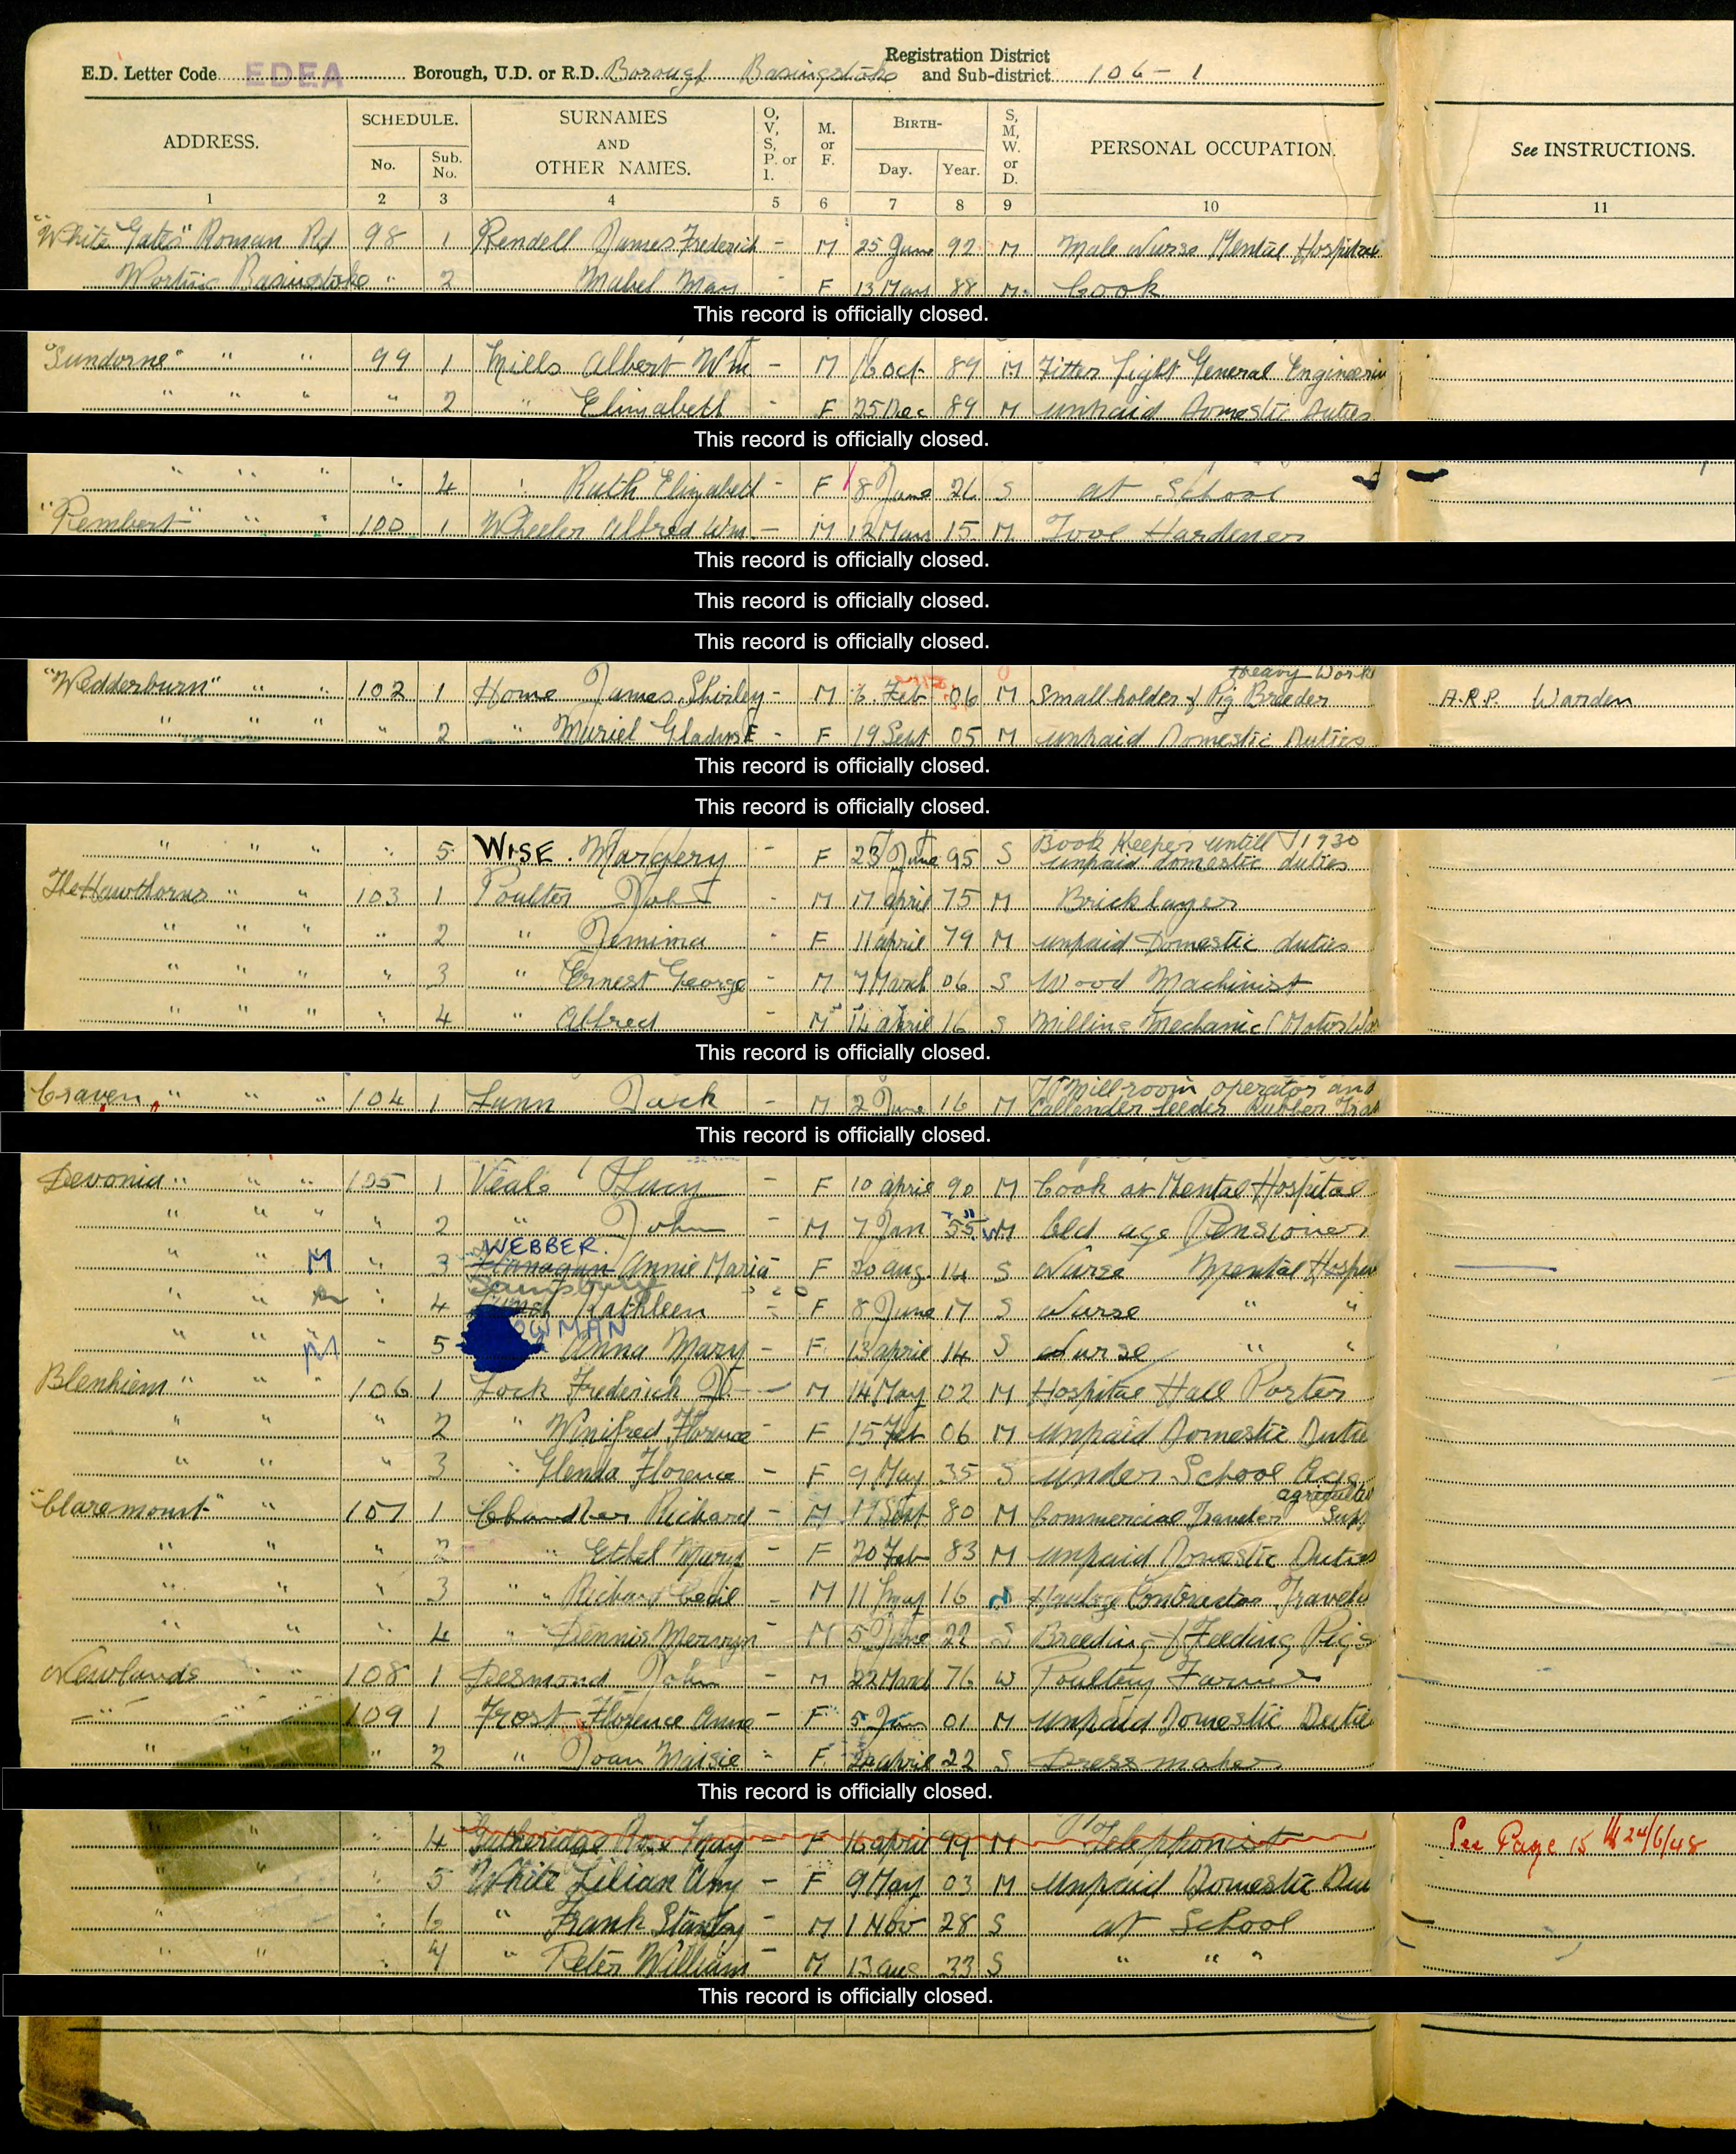 Registration District
E.D. Letter Code EDEA Borough, U.D. or R.D. Borough Basingstoke and Sub-district 106-1
ADDRESS. SCHEDULE. No. Sub. No. SURNAMES AND OTHER NAMES. O, V, S, P. or I. M. or F. BIRTH- Day. Year. S, M, W. or D. PERSONAL OCCUPATION. See INSTRUCTIONS.
1 2 3 4 5 6 7 8 9 10 11
"White Gates" Roman Rd 98 1 Rendell James Frederick - M 25 June 92 M Male Nurse Mental Hospital
Worting Basingstoke " 2 Mabel May - F 13 88 M. Cook
This record is officially closed.
"Sundorne" " " 99 1 Mills Albert Wm - M 16 Oct 89 M Fitter Light General Engineerin
" " " " 2 " Elizabeth - F 25 Dec 89 M unpaid Domestic Duties
This record is officially closed.
" " " " 4 " Ruth Elizabeth - F 8 June 26 S at School
"Rembert" " " 100 1 Wheeler Alfred Wm. - M 12 15 M Tool Hardener
This record is officially closed.
This record is officially closed.
This record is officially closed.
Heavy Work
"Wedderburn" " " 102 1 Home James Shirley - M 6 Feb 06 M Smallholder & Pig Breeder A.R.P. Warden
" " " " 2 " Muriel Gladys E - F 19 Sept 05 M unpaid Domestic Duties
This record is officially closed.
This record is officially closed.
Book Keeper untill 1930
" " " " 5 WISE. Margery - F 23 June 95 S unpaid domestic duties
The Hawthorns " " 103 1 Poulter - M 17 April 75 M Bricklayer
" " " " 2 " Jemima - F 11 April 79 M unpaid Domestic duties
" " " " 3 " Ernest George - M 7 March 06 S Wood Machinist
" " " " 4 " Alfred - M 14 April 16 S Milling Mechanic (Motor
This record is officially closed.
Millroom operator and
Craven " " " 104 1 Lunn Jack - M 2 June 16 M Callender feeder Rubber
This record is officially closed.
Devonia " " " 105 1 Veal Lucy - F 10 April 90 M Cook at Mental Hospital
" " " 2 " John - M 7 Jan 55 W Old age Pensioner
WEBBER.
" " M " 3 Flanagan Annie Maria - F 20 Aug. 14 S Nurse Mental Hospi
" " " 4 Kathleen - F 8 June 17 S Nurse " "
OWMAN
" " M " 5 Anna Mary - F 13 April 14 S Nurse " "
Blenhiem " " " 106 1 Lock Frederick - M 14 May 02 M Hospital Hall Porter
" " " 2 " Winifred Florence - F 15 Feb 06 M unpaid Domestic Dutie
" " " 3 " Glenda Florence - F 9 May 35 S under School Age
agricultu
"Claremount" " 107 1 Chandler Richard - M 17 Sept 80 M Commercial Traveler
" " " 2 " Ethel Mary - F 20 Feb 83 M unpaid Domestic Duties
" " " 3 " Richard Cecil - M 11 May 16 Haulage Contractor
" " " 4 " Dennis Mervyn - M 5 June 22 S Breeding & Feeding Pigs
Newlands " " 108 1 Desmond John - M 22 March 76 W Poultry Farmer
" 109 1 Frost Florence Anne - F 5 01 M unpaid Domestic Dutie
" " " 2 " Joan Maisie - F 24 April 22 S Dressmaker
This record is officially closed.
" 4 Gutheridge Rose May - F 16 April 99 M Telephonist See Page 15 24/6/48
" " " 5 White Lilian Amy - F 9 May 03 M Unpaid Domestic
" " " 6 " Frank Stanley - M 1 Nov 28 S at School
" " " 7 " Peter William - M 13 Aug 33 S " " "
This record is officially closed.